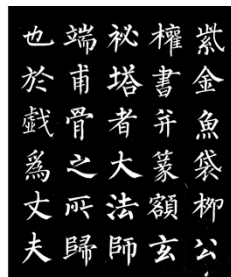 紫金魚袋柳公
權書并篆額玄
祕塔者大法師
端甫骨之所歸
也於戲爲丈夫